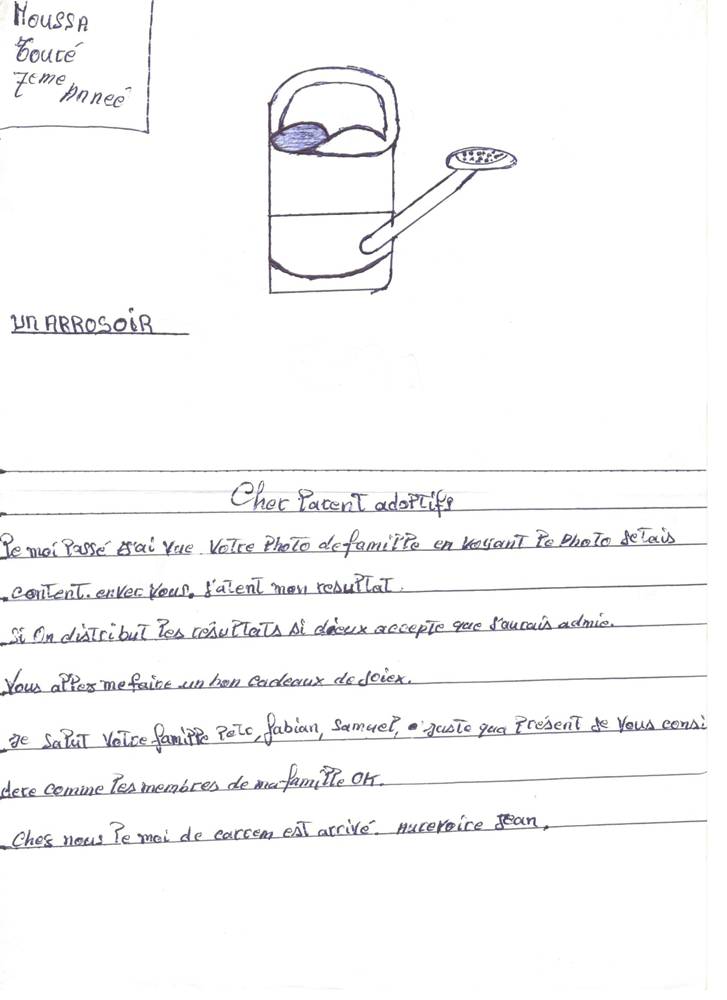 Moussa
Touré
7eme Anneé
un ARROSOiR
Cher Parent adoptifs
le moi Passé j'ai vue votre photo de famille en voyant le photo jetais
content. enver vous. j'atent mon resultat.
Si On distribut les resultats si dieux accepte que j'aurais admie.
Vous allez me faire un bon cadeaux de Joiex.
Je Salut votre famille Pelc, fabian, Samuel, juste qua Present Je vous consi
dere comme les membres de ma famille OK.
Ches nous le moi de carcem est arrivé. Aurevoire Jean.